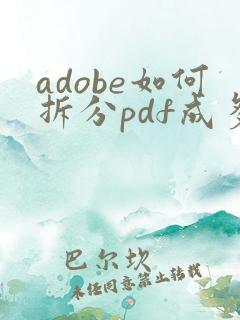 adobe如何
拆分pdf成
巴尔坎
未经同意禁止转载